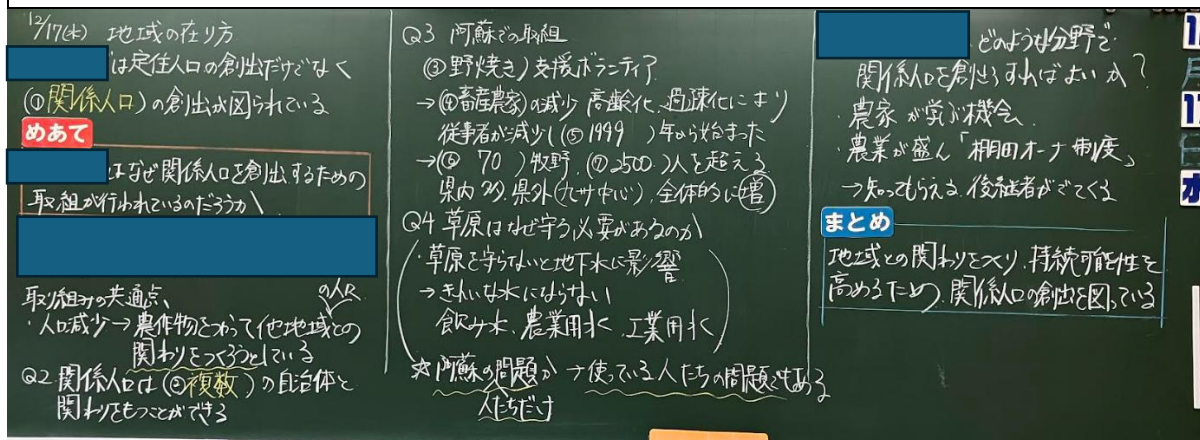 12/17(水) 地域の在り方
は定住人口の創出だけでなく
(①関係人口)の創出が図られている
めあて
はなぜ関係人口を創出するための
取組が行われているのだろうか
取り組みの共通点、
・人口減少→農作物をつかって他地域との
の人々
関わりをつくろうとしている
Q2 関係人口は(②複数)の自治体と
関わりをもつことができる
Q3 阿蘇での取組
(③野焼き)支援ボランティア
→(④畜産農家)の減少 高齢化、過疎化により
従事者が減少し(⑤1999)年から始まった
→(⑥ 70)牧野、(⑦2500)人を超える
県内 県外(九州中心)、全体的に増
Q4 草原はなぜ守る必要があるのか
・草原を守らないと地下水に影響
→きれいな水にならない
飲み水、農業用水、工業用水
☆阿蘇の問題か→使っている人たちの問題でもある
人たちだけ
どのような分野で
関係人口を創出すればよいか?
・農家が学ぶ機会
・農業が盛ん「棚田オーナー制度」
→知ってもらえる、後継者がでてくる
まとめ
地域との関わりをつくり、持続可能性を
高めるため、関係人口の創出を図っている
月
水